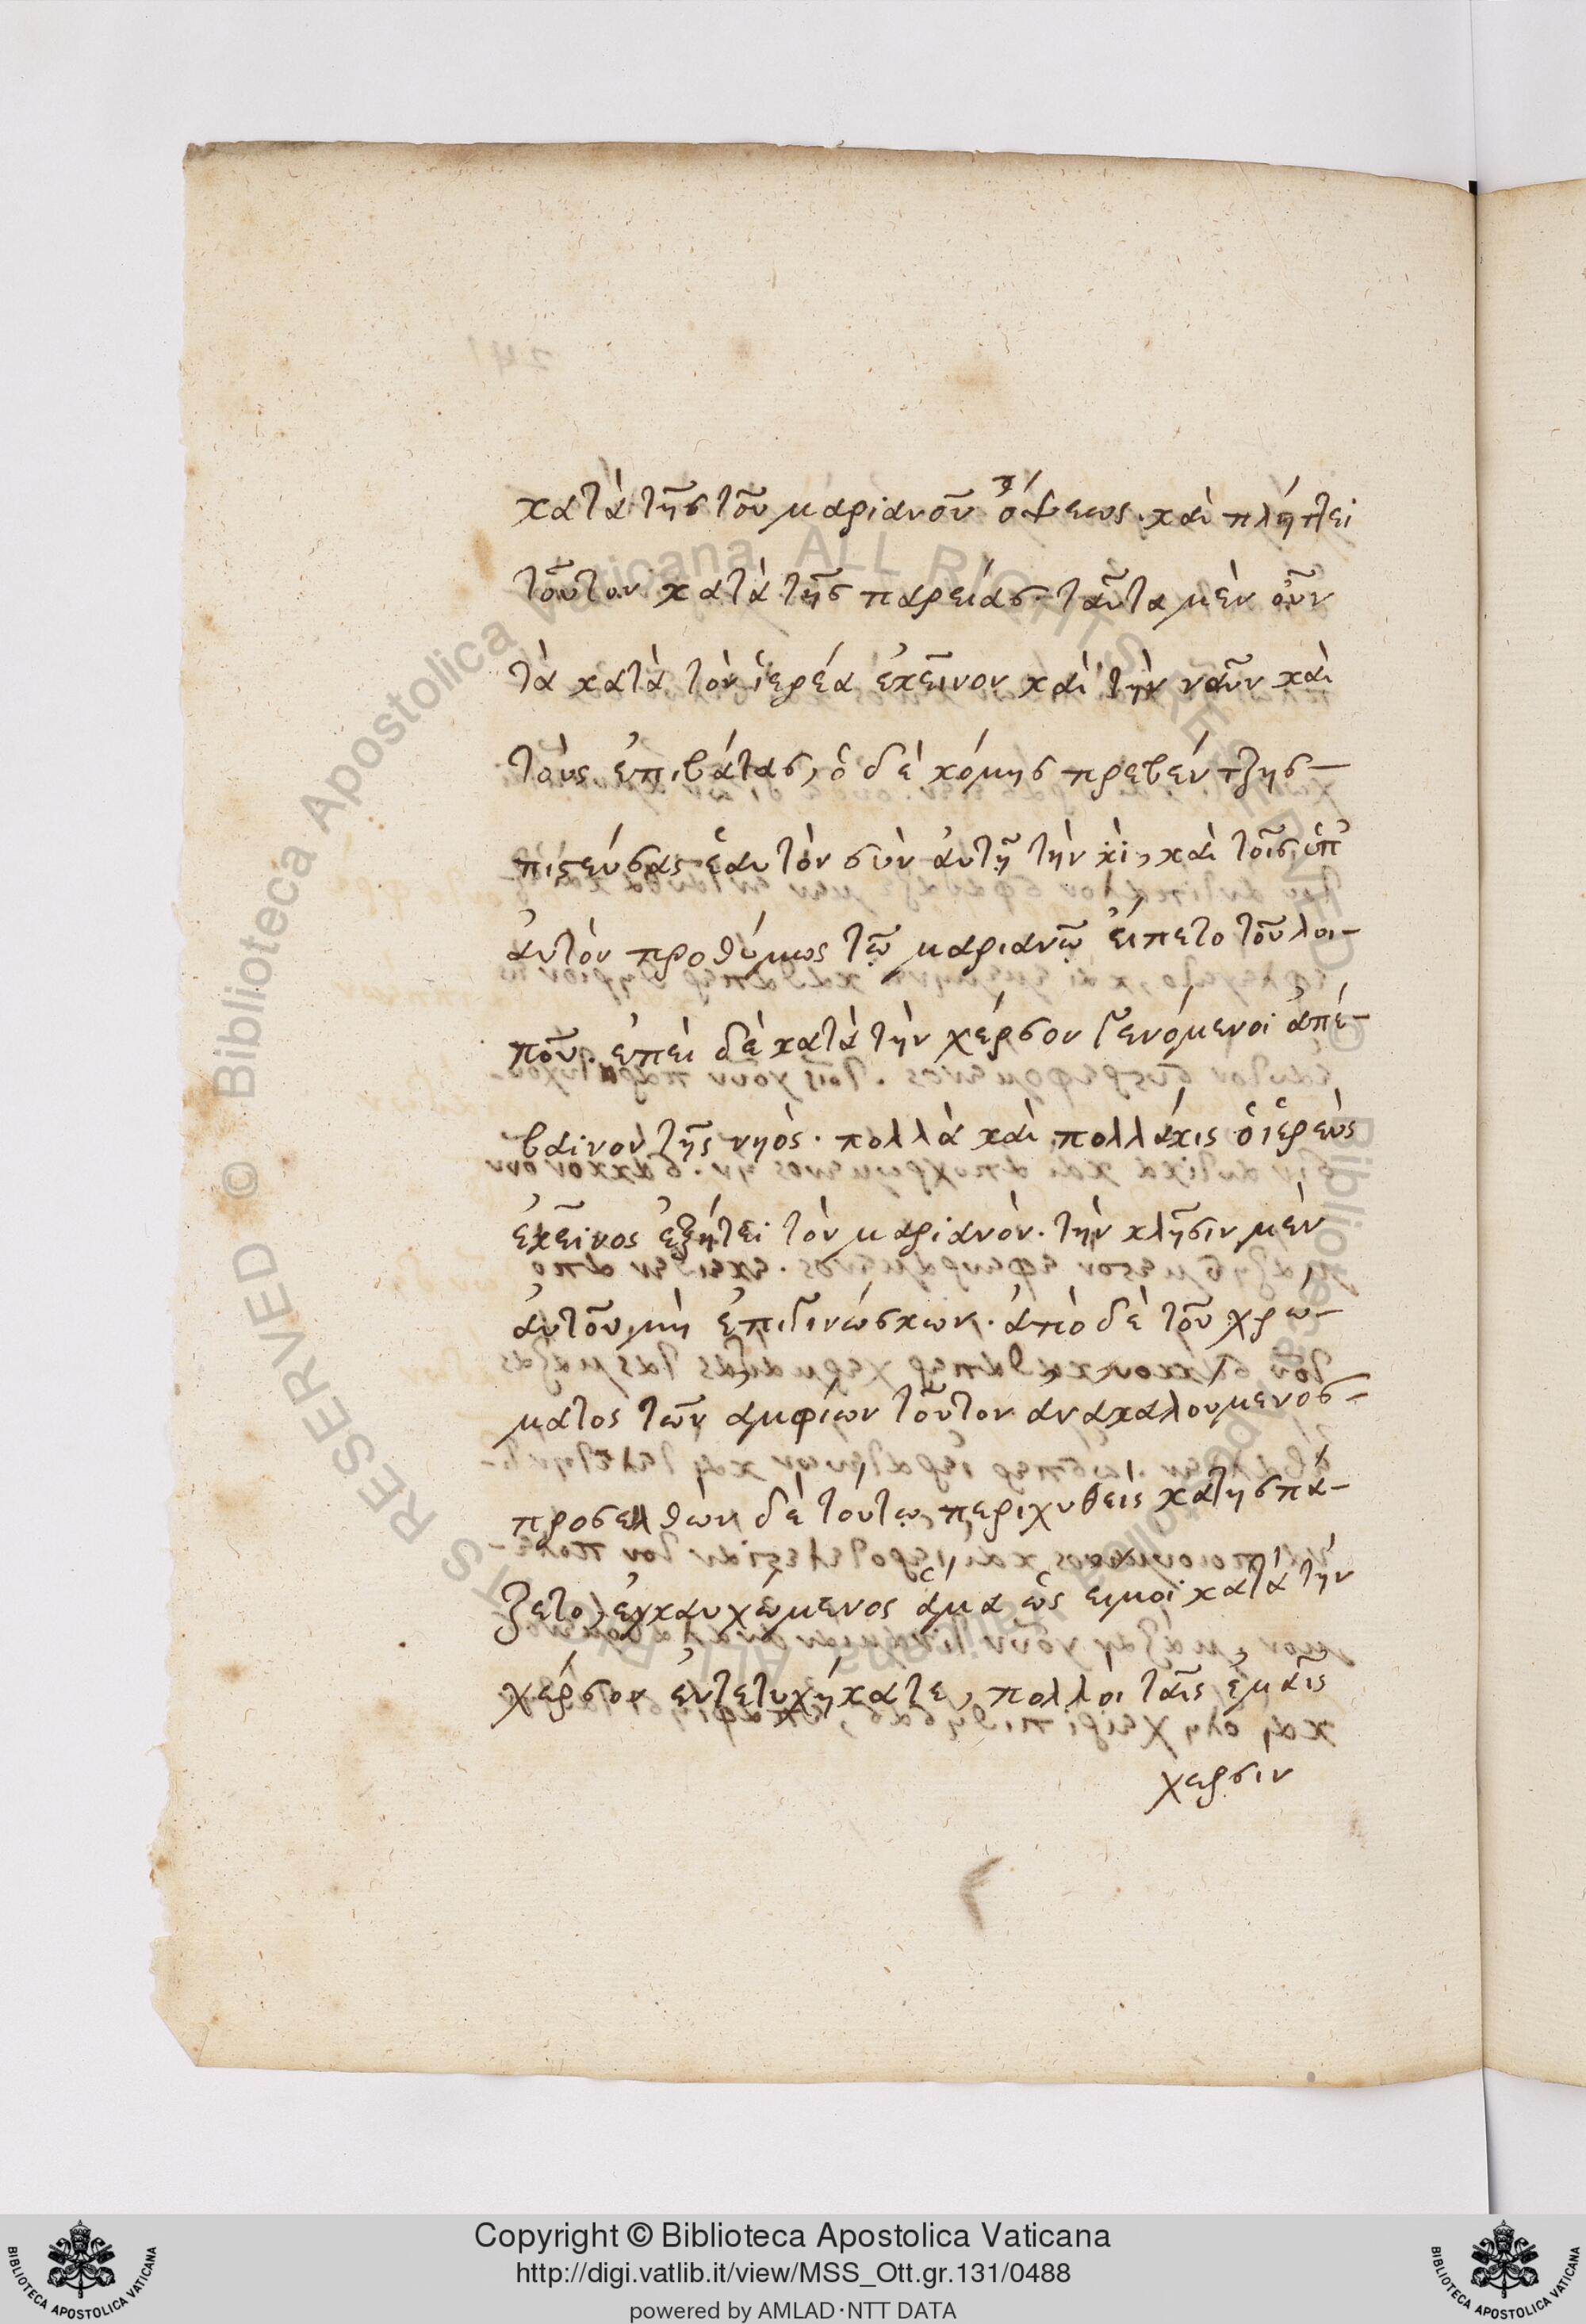 κατὰ τῆς τοῦ μαριανοῦ ὄψεως. καὶ πλήττει
τοῦτον κατὰ τῆς παρειάς. ταῦτα μὲν οὖν
τὰ κατὰ τὸν ἱερέα ἐκεῖνον καὶ τὴν ναῦν καὶ
τοὺς ἐπιβάτας, ὁ δὲ κόμης πρεβέντζης
πιστεύσας ἑαυτὸν σὺν ἀυτῆ τὴν νηὶ, καὶ τοῖς ὑπ'
ἀυτὸν προθύμως τῶ μαριανῶ εἵπετο τοῦ λοι-
ποῦ. ἐπεὶ δὲ κατὰ τὴν χέρσον γενόμενοι ἀπέ-
βαινον τῆς νηὸς. πολλὰ καὶ πολλάκις ὁ ἱερεὺς
ἐκεῖνος ἐζήτει τὸν μαριανὸν. τὴν κλῆσιν μὲν
ἀυτοῦ μὴ ἐπιγινώσκων. ἀπὸ δὲ τοῦ χρώ-
ματος τῶν ἀμφίων τοῦτον ἀνακαλουμενος
προσελθὼν δὲ τούτω περιχυθεὶς κατησπά-
ζετο, ἐγκαυχώμενος ἅμα ὡς ειμοι κατὰ τὴν
χέρσον ἐντετυχήκατε, πολλοι ταῖς ἐμαῖς
χερσιν
Copyright © Biblioteca Apostolica Vaticana
http://digi.vatlib.it/view/MSS_Ott.gr.131/0488
powered by AMLAD·NTT DATA
BIBLIOTECA APOSTOLICA VATICANA
BIBLIOTECA APOSTOLICA VATICANA